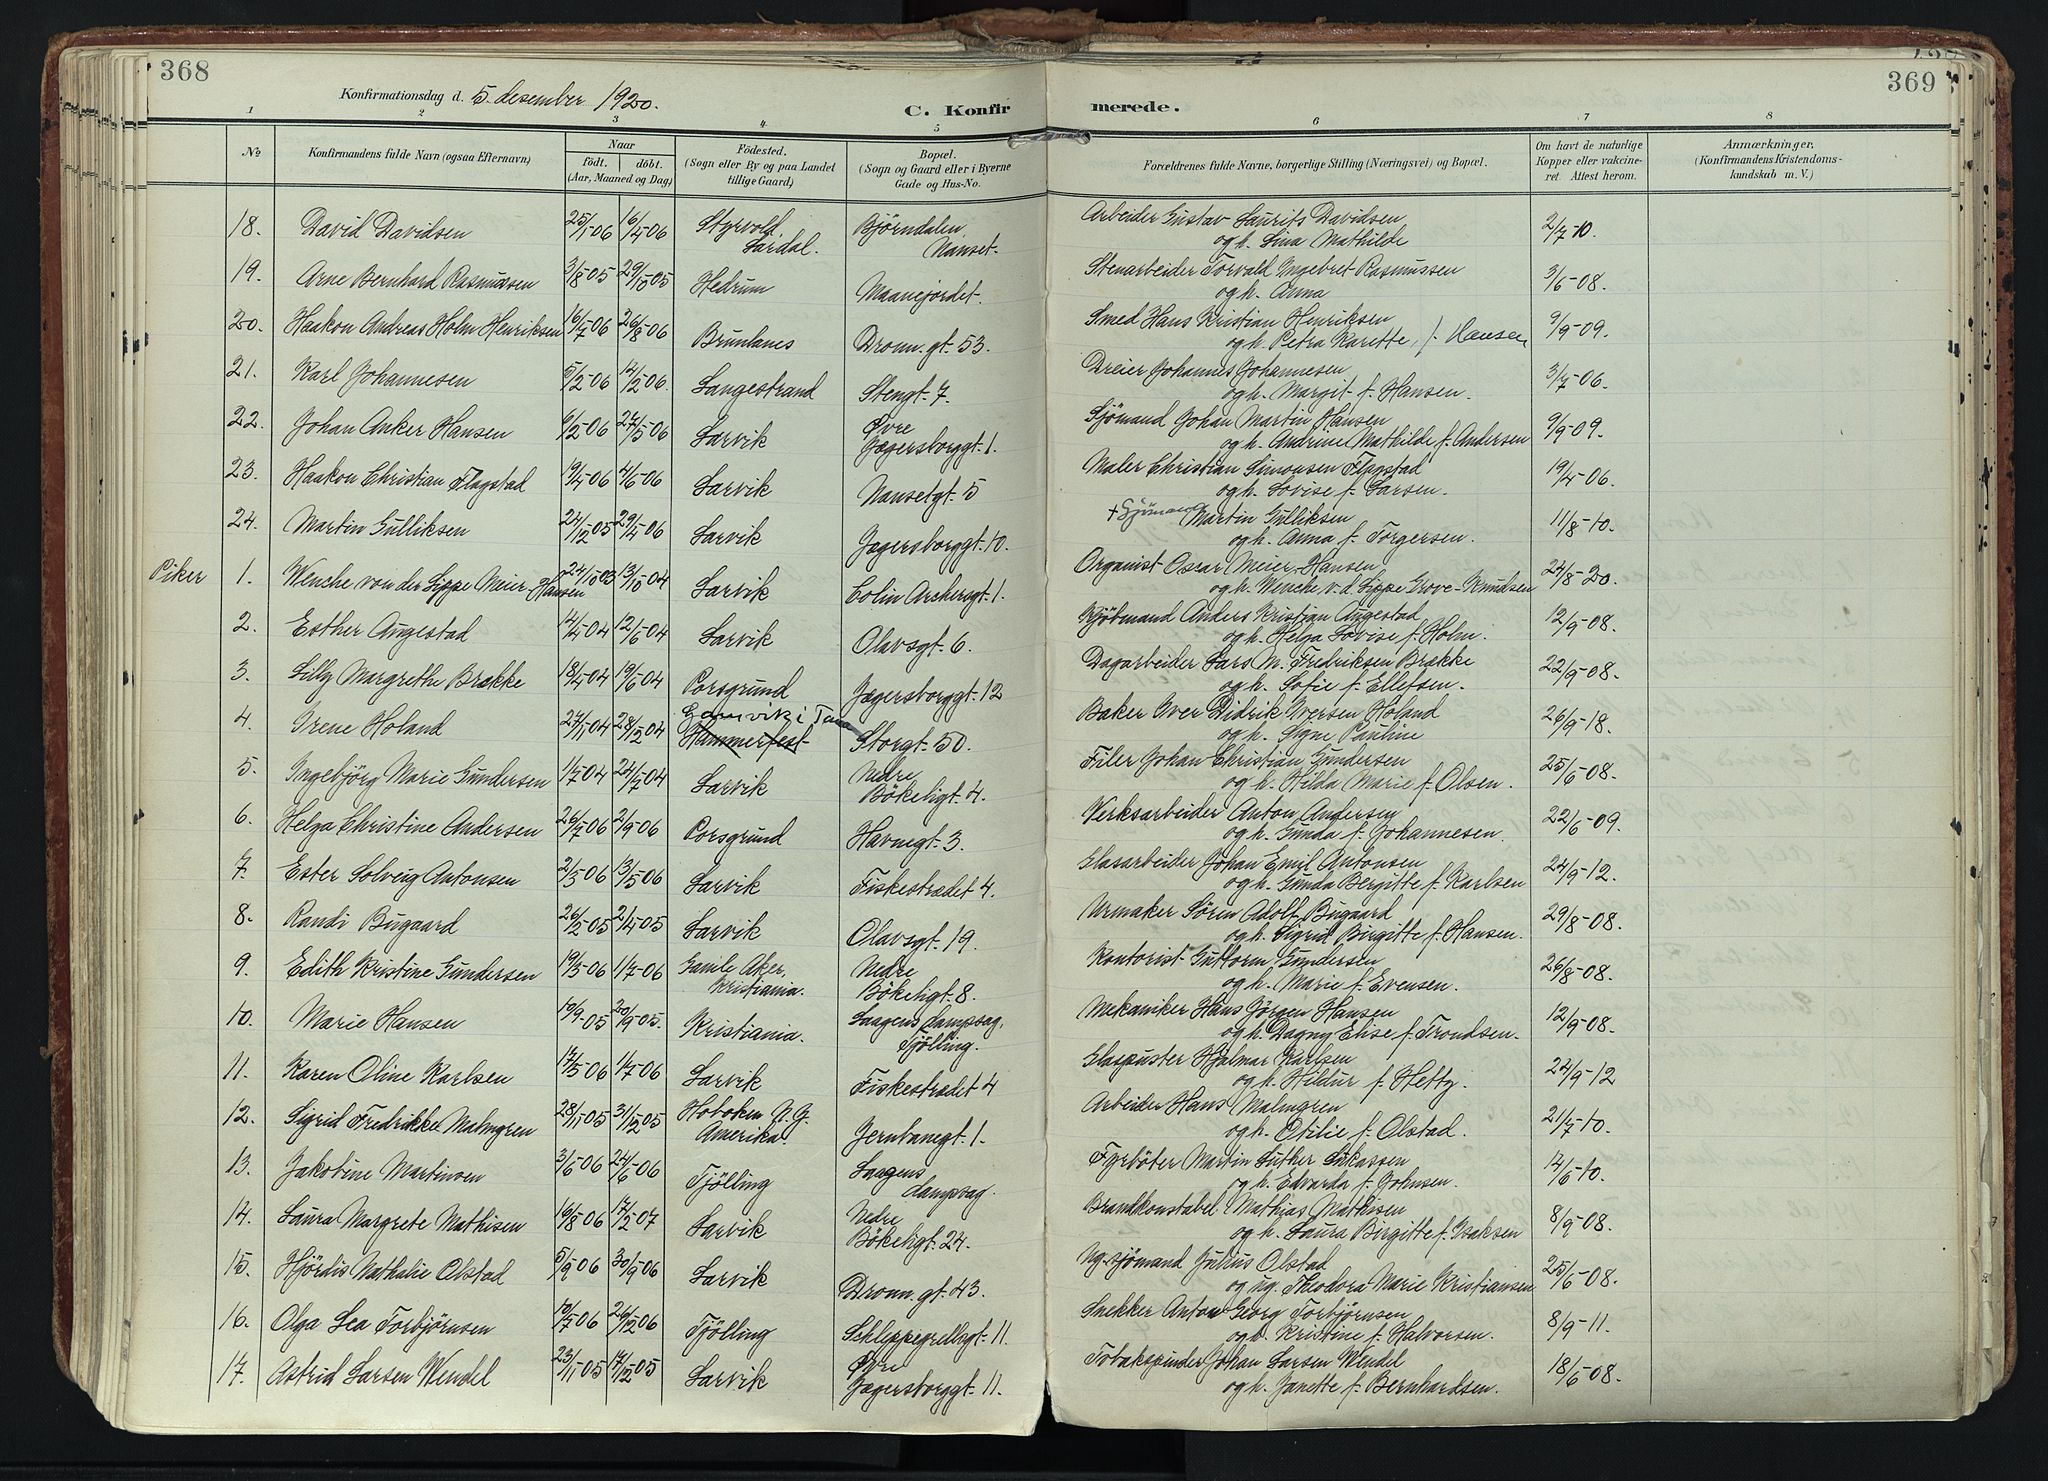 368
369
Konfirmationsdag d. 5. desember 1920.
C. Konfirmerede.
1 2 3 4 5 6 7 8
No
Konfirmandens fulde Navn (ogsaa Efternavn)
Naar
födt. döbt.
(Aar, Maaned og Dag)
Födested.
(Sogn eller By og paa Landet
tillige Gaard)
Bopæl.
(Sogn og Gaard eller i Byerne
Gade og Hus-No.
Forældrenes fulde Navne, borgerlige Stilling (Næringsvei) og Bopæl.
Om havt de naturlige
Kopper eller vakcine-
ret. Attest herom.
Anmærkninger.
(Konfirmandens Kristendoms-
kundskab m. V.)
18. David Davidsen 25/1-06 16/4-06 Styrvold, Lardal. Bjørndalen, Nanset. Arbeider Gustav Laurits Davidsen 2/7-10.
og h. Lina Mathilde
19. Arne Bernhard Rasmussen 3/8-05 29/10-05 Hedrum Maanejordet. Stenarbeider Torvald Ingebret Rasmussen 3/6-08.
og h. Anna
20. Haakon Andreas Holm Henriksen 16/7-06 26/8-06 Brunlanes Dronn.gt. 53. Smed Hans Kristian Henriksen 9/9-09.
og h. Petra Karette, f. Hansen
21. Karl Johannesen 5/2-06 14/2-06. Langestrand Stengt. 7. Dreier Johannes Johannesen 3/7-06.
og h. Margit f. Hansen.
22. Johan Anker Hansen 6/2-06 27/5-06 Larvik Øvre Jægersborggt. 1. Sjömand Johan Martin Hansen 9/9-09.
og h. Andrine Mathilde f. Andersen
23. Haakon Christian Flagstad 19/4-06 4/6-06 Larvik Nansetgt. 5 Maler Christian Simonsen Flagstad 19/4-06.
og h. Lovise f. Larsen.
24. Martin Gulliksen 24/12-05 29/4-06 Larvik Jægersborggt. 10. + Sjömand Martin Gulliksen 11/8-10.
og h. Anna f. Torgersen.
Piker 1. Wenche von der Lippe Meier-Hansen 24/10-03 13/10-04 Larvik Colin Archersgt. 1. Organist Oscar Meier-Hansen 24/8-20.
og h. Wenche v. d. Lippe Grove-Knudsen
2. Esther Augestad 14/4-04 12/6-04 Larvik Olavsgt. 6. Kjöbmand Anders Kristian Augestad 12/9-08.
og h. Helga Lovise f. Holm.
3. Lilly Margrethe Brække 18/4-04 19/6-04 Porsgrund Jægersborggt. 12 Dagarbeider Lars M. Fredriksen Brække 22/9-08.
og h. Sofie f. Ellefsen.
4. Irene Holand 27/1-04 28/2-04 Gamvik i Tana Hammerfest Storgt. 50. Baker Iver Didrik Iversen Holand 26/9-18.
og h. Signe Pauline
5. Ingebjörg Marie Gundersen 1/7-04 24/7-04 Larvik Nedre Bökeligt. 4. Filer Johan Christian Gundersen 25/6-08.
og h. Hilda Marie f. Olsen.
6. Helga Christine Andersen 26/7-06 2/9-06 Porsgrund Havnegt. 3. Verksarbeider Anton Andersen 22/6-09.
og h. Gunda f. Johannesen.
7. Ester Solveig Antonsen 2/3-06 13/5-06 Larvik Fiskestrædet 4. Glasarbeider Johan Emil Antonsen 24/9-12.
og h. Gunda Bergitte f. Karlsen
8. Randi Bugaard 26/2-05 2/4-05 Larvik Olavsgt. 19. Urmaker Sören Adolf Bugaard 29/8-08.
og h. Sigrid Birgitte f. Hansen.
9. Edith Kristine Gundersen 19/3-06 1/7-06 Gamle Aker, Kristiania. Nedre Bökeligt. 8. Kontorist Guttorm Gundersen 26/8-08.
og h. Marie f. Evensen.
10. Marie Hansen 10/9-05 20/9-05. Kristiania. Laagens dampsag, Tjölling. Mekaniker Hans Jörgen Hansen 12/9-08.
og h. Dagny Elise f. Trondsen.
11. Karen Oline Karlsen 17/5-06 1/7-06 Larvik Fiskestrædet 4 Glaspuster Hjalmar Karlsen 24/9-12
og h. Hildur f. Hetty.
12. Sigrid Fredrikke Malmgren 28/11-05 31/12-05 Hoboken Amerika. Jernbanegt. 1. Arbeider Hans Malmgren 21/7-10.
og h. Otilie f. Olstad.
13. Jakobine Martinsen 3/6-06 24/6-06 Tjölling Laagens dampsag. Fyrböter Martin Luther Lukassen 14/6-10.
og h. Edvarda f. Johnsen.
14. Laura Margrete Mathisen 16/8-06 17/2-07 Larvik Nedre Bökeligt. 24. Brandkonstabel Mathias Mathisen 8/9-08.
og h. Laura Birgitte f. Isaksen
15. Hjördis Nathalie Olstad 5/9-06 30/9-06 Larvik Dronn.gt. 43. Ug. sjömand Julius Olstad 25/6-08.
og ug. Theodora Marie Kristiansen
16. Olga Lea Torbjörnsen 10/7-06 26/12-06 Tjölling Schlippegrellsgt. 11. Snekker Anton Georg Torbjørnsen 8/9-11.
og h. Kristine f. Halvorsen.
17. Astrid Larsen Wendel 23/11-05 17/12-05 Larvik Øvre Jægersborggt. 11. Tobakspinder Johan Larsen Wendel 18/6-08.
og h. Janette f. Bernhardsen.